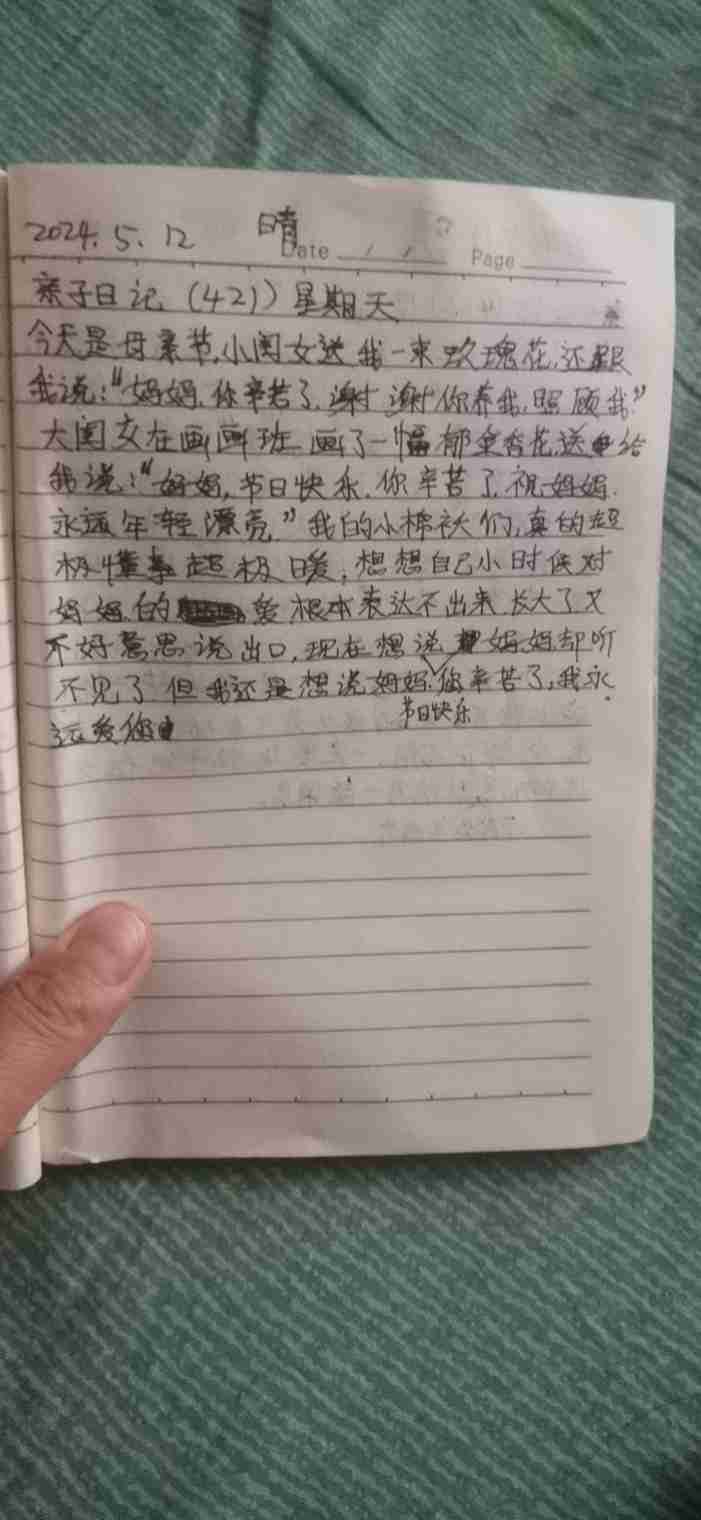 2024.5.12 晴
Date / / Page
亲子日记(421)星期天
今天是母亲节,小闺女送我一束玫瑰花,还跟
我说:"妈妈,你辛苦了,谢谢你养我,照顾我"
大闺女在画画班画了一幅郁金香花,送给
我说:"妈妈,节日快乐,你辛苦了,祝妈妈,
永远年轻漂亮"我的小棉袄们,真的超
极懂事超极暖,想想自己小时候对
妈妈的爱根本表达不出来长大了又
不好意思说出口,现在想说妈妈却听
不见了但我还是想说妈妈节日快乐,您辛苦了,我永
远爱您